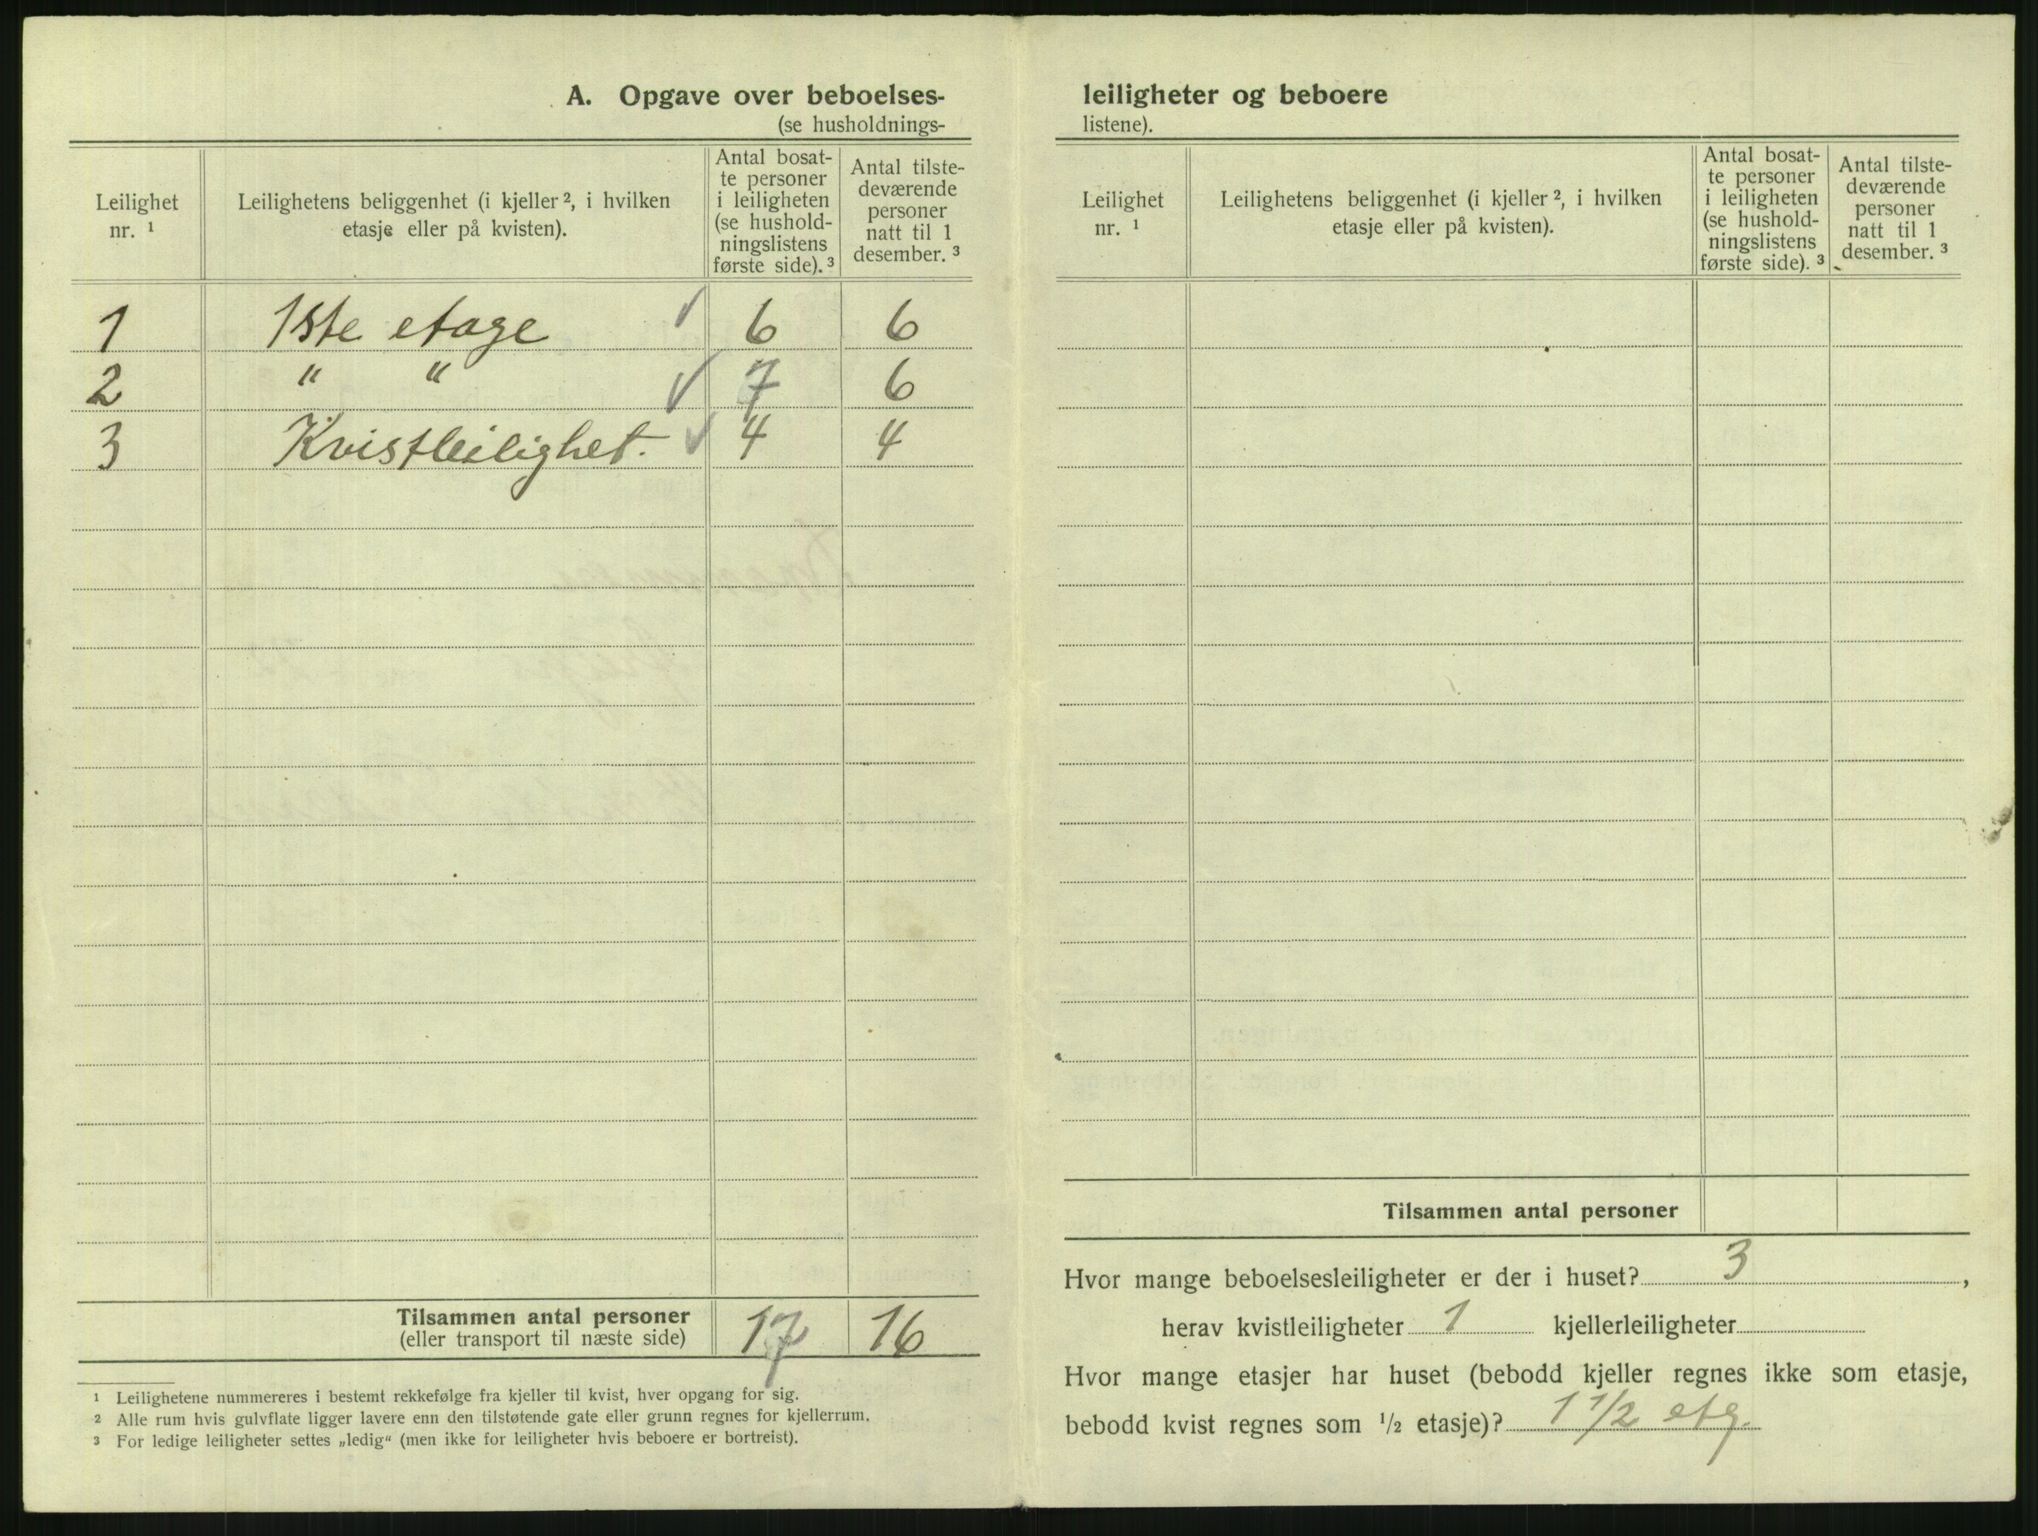 A. Opgave over beboelses-
(se husholdnings-
Leilighet
nr. ¹
Leilighetens beliggenhet (i kjeller ², i hvilken
etasje eller på kvisten).
Antal bosat-
te personer
i leiligheten
(se hushold-
ningslistens
første side). ³
Antal tilste-
deværende
personer
natt til 1
desember. ³
1 1ste etage 6 6
2 " " 7 6
3 Kvistleilighet. 4 4
Tilsammen antal personer
(eller transport til næste side)
17 16
¹ Leilighetene nummereres i bestemt rekkefølge fra kjeller til kvist, hver opgang for sig.
² Alle rum hvis gulvflate ligger lavere enn den tilstøtende gate eller grunn regnes for kjellerrum.
³ For ledige leiligheter settes „ledig“ (men ikke for leiligheter hvis beboere er bortreist).
leiligheter og beboere
listene).
Leilighet
nr. ¹
Leilighetens beliggenhet (i kjeller ², i hvilken
etasje eller på kvisten).
Antal bosat-
te personer
i leiligheten
(se hushold-
ningslistens
første side). ³
Antal tilste-
deværende
personer
natt til 1
desember. ³
Tilsammen antal personer
Hvor mange beboelsesleiligheter er der i huset? 3,
herav kvistleiligheter 1 kjellerleiligheter
Hvor mange etasjer har huset (bebodd kjeller regnes ikke som etasje,
bebodd kvist regnes som ½ etasje)? 1 ½ etg.